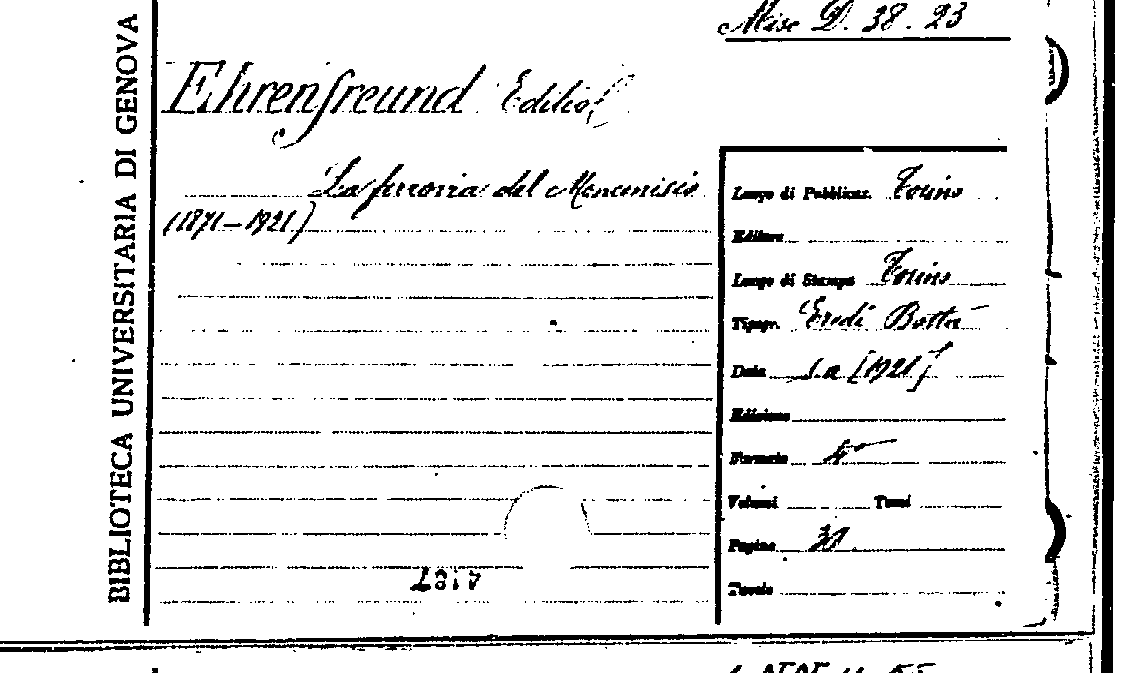 Misc D. 38. 23
BIBLIOTECA UNIVERSITARIA DI GENOVA
Ehrenfreund Edilio
La ferrovia del Moncenisio
(1871-1921)
Luogo di Pubblicaz. Torino
Editore
Luogo di Stampa Torino
Tipogr. Eredi Botta
Data s.a [1921]
Edizione
Formato 4°
Volumi Tomi
Pagine 31
Tavole